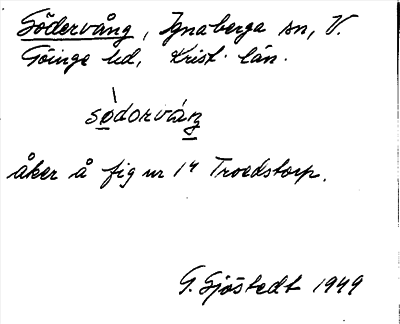 Södervång, Ignaberga sn, V.
Göinge hd, Krist. län.
sodorváng
åker å fig nr 14 Troedstorp.
G. Sjöstedt 1949